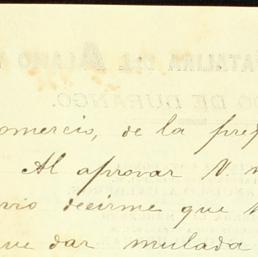 CATALINA DEL ALAMO
DO DE DURANGO.
omercio, de la pref
Al aprovar V. m
vio decirme que
ue dar mulada